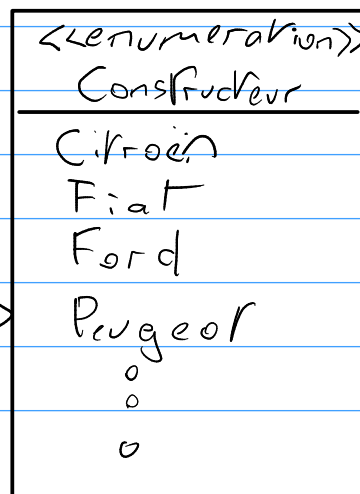 <<enumeration>>
Constructeur
Citroën
Fiat
Ford
Peugeot